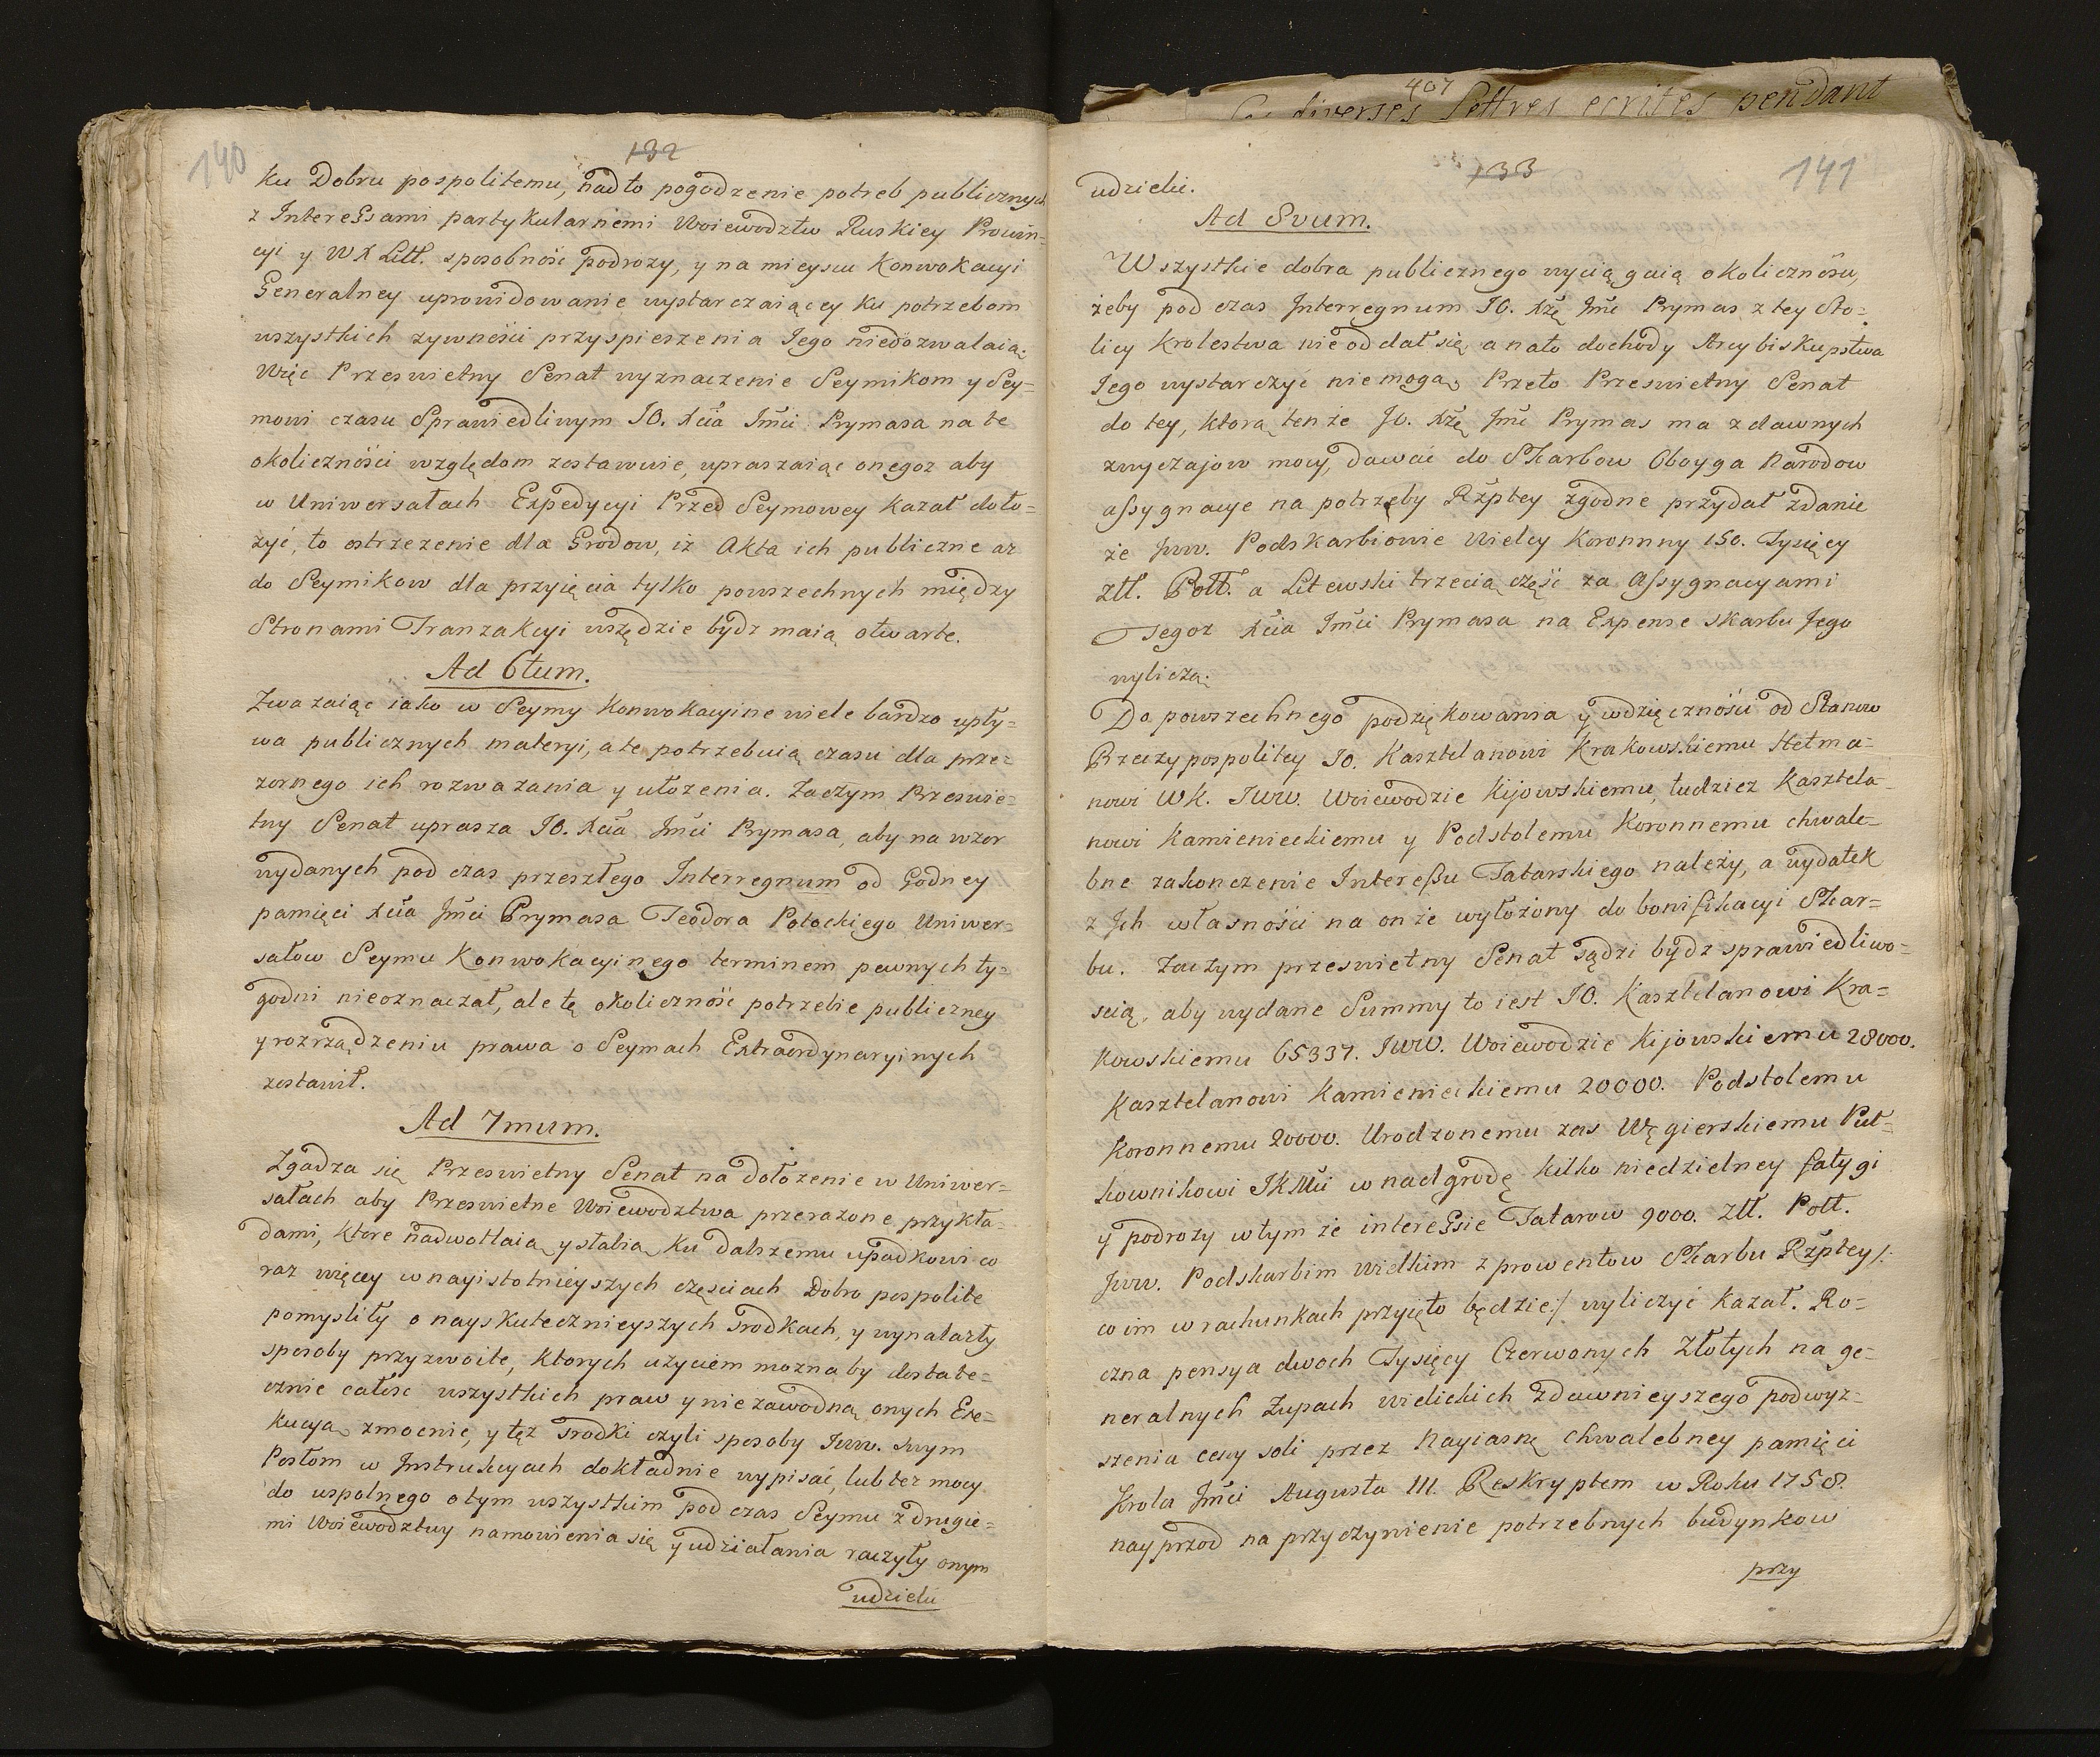 140
132
ku Dobru pospolitemu, nad to pogodzenie potreb publicznych
z Interessami partykularnemi Woiewodztw Ruskiey Prowin=
cyi y WX Litt. sposobność podrozy, y na mieyscu Konwokacyi
Generalney uprowidowanie wystarczaiącey ku potrzebom
wszystkich zywności przyspieszenia Jego niedozwalaią.
Więc Przeswietny Senat wyznaczenie Seymikom y Sey=
mowi czasu Sprawiedliwym JO. Xcia Jmci Prymasa na te
okoliczności względom zostawuie, upraszaiąc onegoz aby
w Uniwersałach Expedycyi Przed Seymowey kazał doło=
zyć, to ostrzezenie dla Grodow, iz Akta ich publiczne az
do Seymikow dla przyięcia tylko powszechnych między
Stronami Tranzakcyi wszędzie bydz maią otwarte.
Ad 6tum.
Zwazaiąc iako w Seymy Konwokacyine wiele bardzo wpły=
wa publicznych materyi, a te potrzebuią czasu dla prze=
zornego ich rozwazania y ułozenia. Zaczym Przeswie=
tny Senat uprasza JO. Xcia Jmci Prymasa, aby na wzor
wydanych pod czas przeszłego Interregnum od Godney
pamięci Xcia Jmci Prymasa Teodora Potockiego Uniwer=
sałow Seymu Konwokacyinego terminem pewnych ty=
godni nieoznaczał, ale tę okoliczność potrzebie publiczney
y rozrządzeniu prawa o Seymach Extraordynaryinych
zostawił.
Ad 7mum.
Zgadza się Przeswietny Senat na dołozenie w Uniwer=
sałach aby Przeswietne Woiewodztwa przerazone przykła=
dami, ktore nadwątlaią y słabią ku dalszemu upadkowi co
raz więcey w nayistotnieyszych częsciach Dobro pospolite
pomysliły o nayskutecznieyszych srodkach, y wynalazły
sposoby przyzwoite, ktorych uzyciem mozna by dostate=
cznie całość wszystkich praw y niezawodną onych Exe=
kucyą zmocnic, y tęz srodki czyli sposoby Jww. swym
Posłom w Instrukcyach dokładnie wypisać, lub tez mocy
do wspolnego o tym wszystkim pod czas Seymu z drugie=
mi Woiewodztwy namowienia się y udziałania raczyły onym
udzielić
407
diverses Lettres ecrites pendant
133
141
udzielić.
Ad 8vum.
Wszystkie dobra publicznego wyciągaią okoliczności,
żeby pod czas Interregnum JO. Xżę Jmć Prymas z tey Sto=
licy Krolestwa nie oddał się a nato dochody Arcybiskupstwa
Jego wystarczyć niemogą, Przeto Przeswietny Senat
do tey, ktorą tenże Jo. Xżę Jmć Prymas ma z dawnych
zwyczajow mocy, dawać do Skarbow Oboyga Narodow
assygnacye na potrzeby Rzptey zgodne przydał zdanie
że Jww. Podskarbiowie Wielcy Koronnny 150. Tysięcy
Złł. Poll. a Litewski trzecią część za Assygnacyami
Tegoz Xcia Jmci Prymasa na Expense Skarbu Jego
wyliczą.
Do powszechnego podziękowania y wdzięczności od Stanow
Rzeczypospolitey JO. Kasztelanowi Krakowskiemu Hetma=
nowi WK. Jww. Woiewodzie Kijowskiemu, tudziez Kasztela=
nowi Kamienieckiemu y Podstolemu Koronnemu chwale=
bne zakonczenie Interessu Tatarskiego należy, a wydatek
z Jch własności na onże wyłożony do bonifikacyi Skar=
bu. Zaczym przeswietny Senat sądzi bydz sprawiedliwo=
scią, aby wydane Summy to iest JO. Kasztelanowi Kra=
kowskiemu 65337. Jww. Woiewodzie Kijowskiemu 28000.
Kasztelanowi Kamienieckiemu 20000. Podstolemu
Koronnemu 20000. Urodzonemu zas Węgierskiemu Puł=
kownikowi JKMci w nadgrodę kilko niedzielney fatygi
y podrozy w tym że interessie Tatarow 9000. Złł. Poll.
Jww. Podskarbim wielkim z prowentow Skarbu Rzptey /:
co im w rachunkach przyięto będzie :/ wyliczyć kazał. Ro=
czna pensya dwoch Tysięcy Czerwonych Złotych na ge=
neralnych Zupach wielickich z dawnieyszego podwyz=
szenia ceny soli przez Nayiasnę chwalebney pamięci
Krola Jmci Augusta III. Reskryptem w Roku 1758.
nayprzod na przyczynienie potrzebnych budynkow
przy